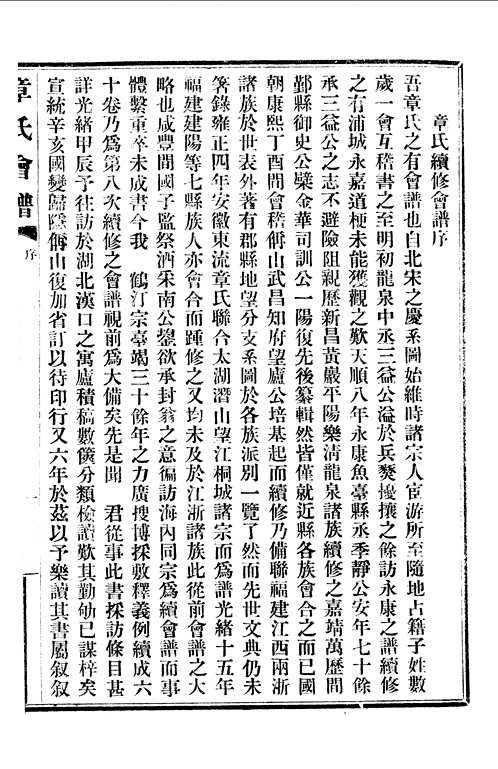 章氏續修會譜序
吾章氏之有會譜也自北宋之慶系圖始維時諸宗人宦游所至隨地占籍子姓數
歲一會互稽書之至明初龍泉中丞三益公溢於兵燹擾攘之餘訪永康之譜續修
之有浦城永嘉道梗未能獲觀之歎天順八年永康魚臺縣丞季靜公安年七十餘
承三益公之志不避險阻親歷新昌黃嚴平陽樂清龍泉諸族續修之嘉靖萬歷間
鄞縣御史公檗金華司訓公一陽復先後纂輯然皆僅就近縣各族會合之而已國
朝康熙丁酉間會稽偁山武昌知府望廬公培基起而續修乃備聯福建江西兩浙
諸族於世表外著有郡縣地望分支系圖於各族派別一覽了然而先世文典仍未
箸錄雍正四年安徽東流章氏聯合太湖潛山望江桐城諸宗而爲譜光緒十五年
福建建陽等七縣族人亦會合而踵修之又均未及於江浙諸族此從前會譜之大
略也咸豐間國子監祭酒采南公鋆欲承封翁之意徧訪海內同宗爲續會譜而事
體繫重卒未成書今我　鶴汀宗臺竭三十餘年之力廣搜博採敷釋義例續成六
十卷乃爲第八次續修之會譜視前爲大備矣先是聞　君從事此書採訪條目甚
詳光緒甲辰予往訪於湖北漢口之寓廬積稿數篋分類檢讀歎其勤劬已謀梓矣
宣統辛亥國變歸隱偁山復加省訂以待印行又六年於茲以予樂讀其書屬叙叙
章氏會譜
序